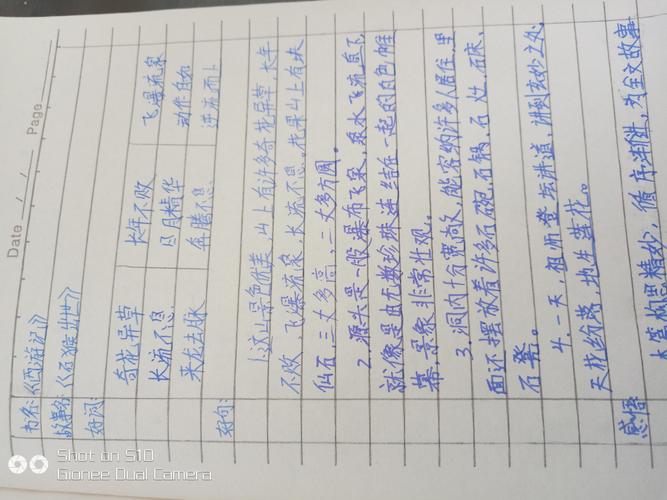 Date / / Page
书名:《西游记》
故事名:《石猴出世》
好词:
奇花异草 长年不败 飞瀑流泉
长流不息 日月精华 动作自如
来龙去脉 奔腾不息 逆流而上
好句:
1.这山景色优美,山上有许多奇花异草,长年
不败,飞瀑流泉,长流不息。花果山上有块
仙石,三丈多高,二丈多方圆。
2.源头是一股瀑布飞泉,泉水飞流直下,
就像是由无数珍珠连结在一起的白色帷
幕,景象非常壮观。
3.洞内十分宽敞,能容纳许多人居住,里
面还摆放着许多石碗、石锅、石灶、石床、
石凳。
4.一天,祖师登坛讲道,讲到玄妙之处,
天花纷落,地生莲花。
感悟:
本篇构思精妙,循序渐进,为全文故事
Shot on S10
Gionee Dual Camera